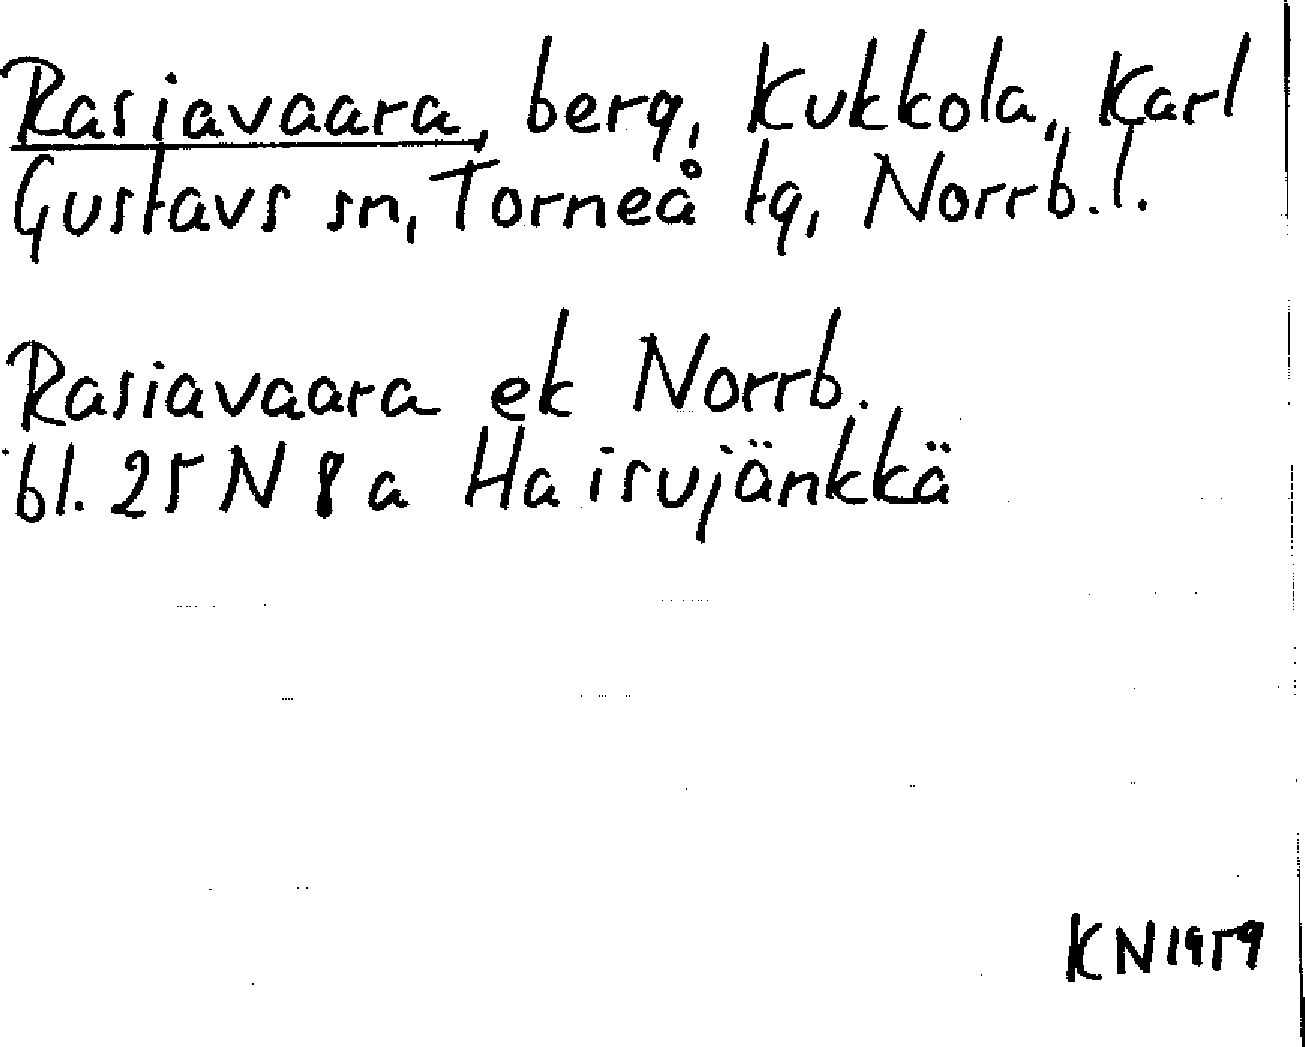 Rasiavaara, berg, Kukkola, Karl
Gustavs sn, Torneå tg, Norrb. l.
Rasiavaara ek Norrb.
bl. 25 N 8 a Haisujänkkä
KN 1959